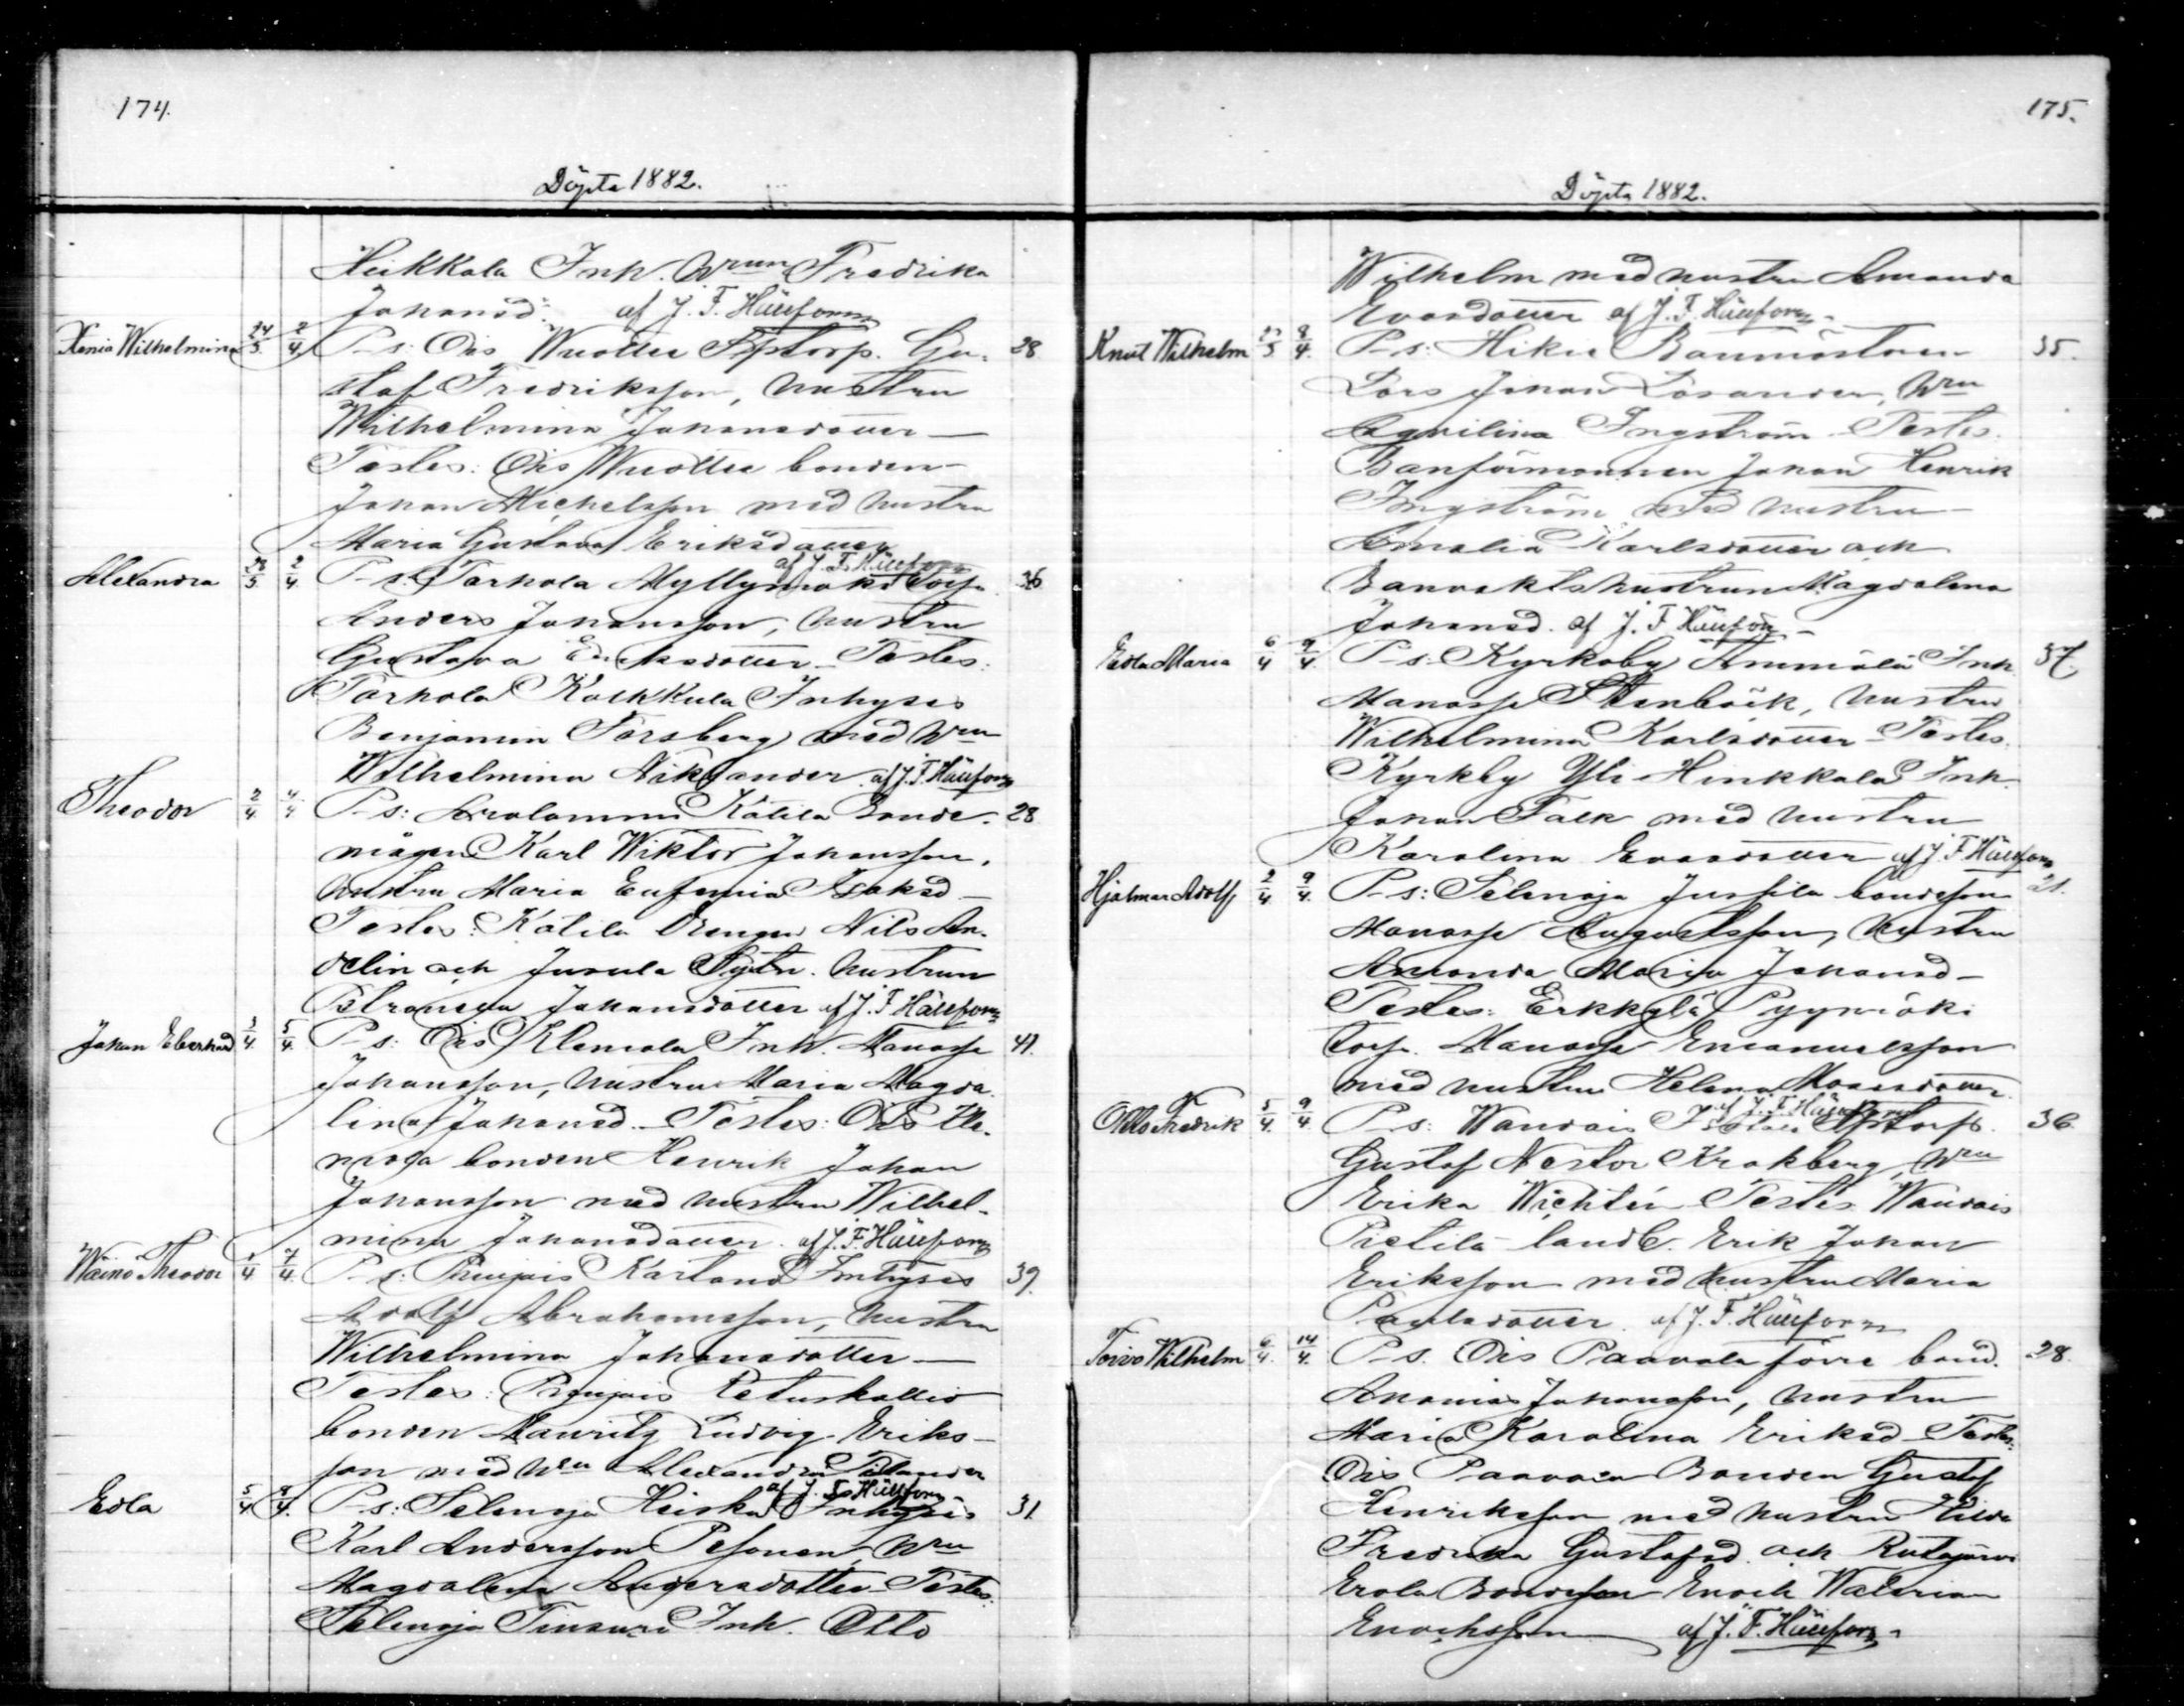 174.
Döpta 1882.
Heikkola Inh. Hrun Fredrika
Johansd. af J. F. Hällfors
Xenia Wilhelmina 24/3 2/4 P-s: Ois Wuoltee Fstorp. Gu- 28
staf Fredriksson, hustru
Wilhelmina Johansdotter —
Testes: Ois Wuoltee bonden
Johan Michelsson med hustru
Maria Gustava Eriksdotter
af J. F. Hällfors
Alexandra 28/3 2/4 P-s: Torhola Myllymäki torp. 36
Anders Johansson, hustru
Gustava Eriksdotter Testes:
Torhola Inhyses
Benjamin Forsberg med hru
Wilhelmina Niklander af J. F. Hällfors
Theodor 2/4 4/4 P-s: Arolammi Kätilä bonde- 28
mågen Karl Wiktor Johansson,
hustru Maria Eufemia Isaksd —
Testes: Kätilä Drengen Nils An-
delin och Jusula hustrun
Johansdotter af J. F. Hällfors
Johan Eberhard 3/4 5/4 P-s: Ois Klemola Inh. Manasse 41.
Johansson, hustru Maria Magda-
lina Johansd. Testes: Ois Kle-
mola bonden Henrik Johan
Johansson med hustru Wilhel-
mina Johansdotter af J. F. Hällfors
Wäinö Theodor 1/4 7/4 P-s: Inhyses 39.
Adolf Abrahamsson, hustru
Wilhelmina Johansdotter —
Testes:
bonden Mauritz Ludvig Eriks-
son med hru Alexandra
af J. F. Hällfors
Edla 5/4 8/4 P-s: Salensaja Heiska Inhyses 31.
Karl Andersson Pesonen, hru
Magdalena Andersdotter Testes:
Inh. Otto
175.
Döpta 1882.
Wilhelm med hustru Amanda
Evasdotter af J. F. Hällfors
Knut Wilhelm 8/4 P-s: Hikie Banmästaren 35.
Lars Johan Losander, hru
Aqvilina Ingström Testes:
Banförmannen Johan Henrik
Ingström med hustru
Amalia Karlsdotter och
Banvaktshustrun Magdalena
Johansd. af J. F. Hällfors
Edla Maria 6/4 9/4 P-s: Kyrkoby Ammälä Inh. 37
Manasse Stenbäck, hustru
Wilhelmina Karlsdotter Testes:
Kyrkby Yli-Hinkkala Inh.
Johan Falk med hustru
Karolina Evasdotter af J. F. Hällfors
Hjalmar Adolf 2/4 9/4 P-s: Jussila bondeson 21.
Manasse Augustsson, hustru
Amanda Maria Johansd —
Testes: Erkkylä Pyymäki
torp. Manasse Emanuelsson
med hustru Helena
af J. F. Hällfors
Otto Fredrik 5/4 9/4 P-s: Wandais Fstorp. 36
Gustaf Nestor Krakberg, hru
Erika Wichtén Testes: Wandais
Pietilä landb. Erik Johan
Eriksson med hustru Maria
Paulsdotter. af J. F. Hällfors
Toivo Wilhelm 6/4 14/4 P-s. Ois Paavola förre bond. 28.
Ananias Johansson, hustru
Maria Karolina Eriksd Testes:
Ois Paavola Bonden Gustaf
Henriksson med hustru Hilda
Fredrika Gustafsd. och Rutajärvi
Erola Bondeson Enoch Walerian
Enochsson af J. F. Hällfors